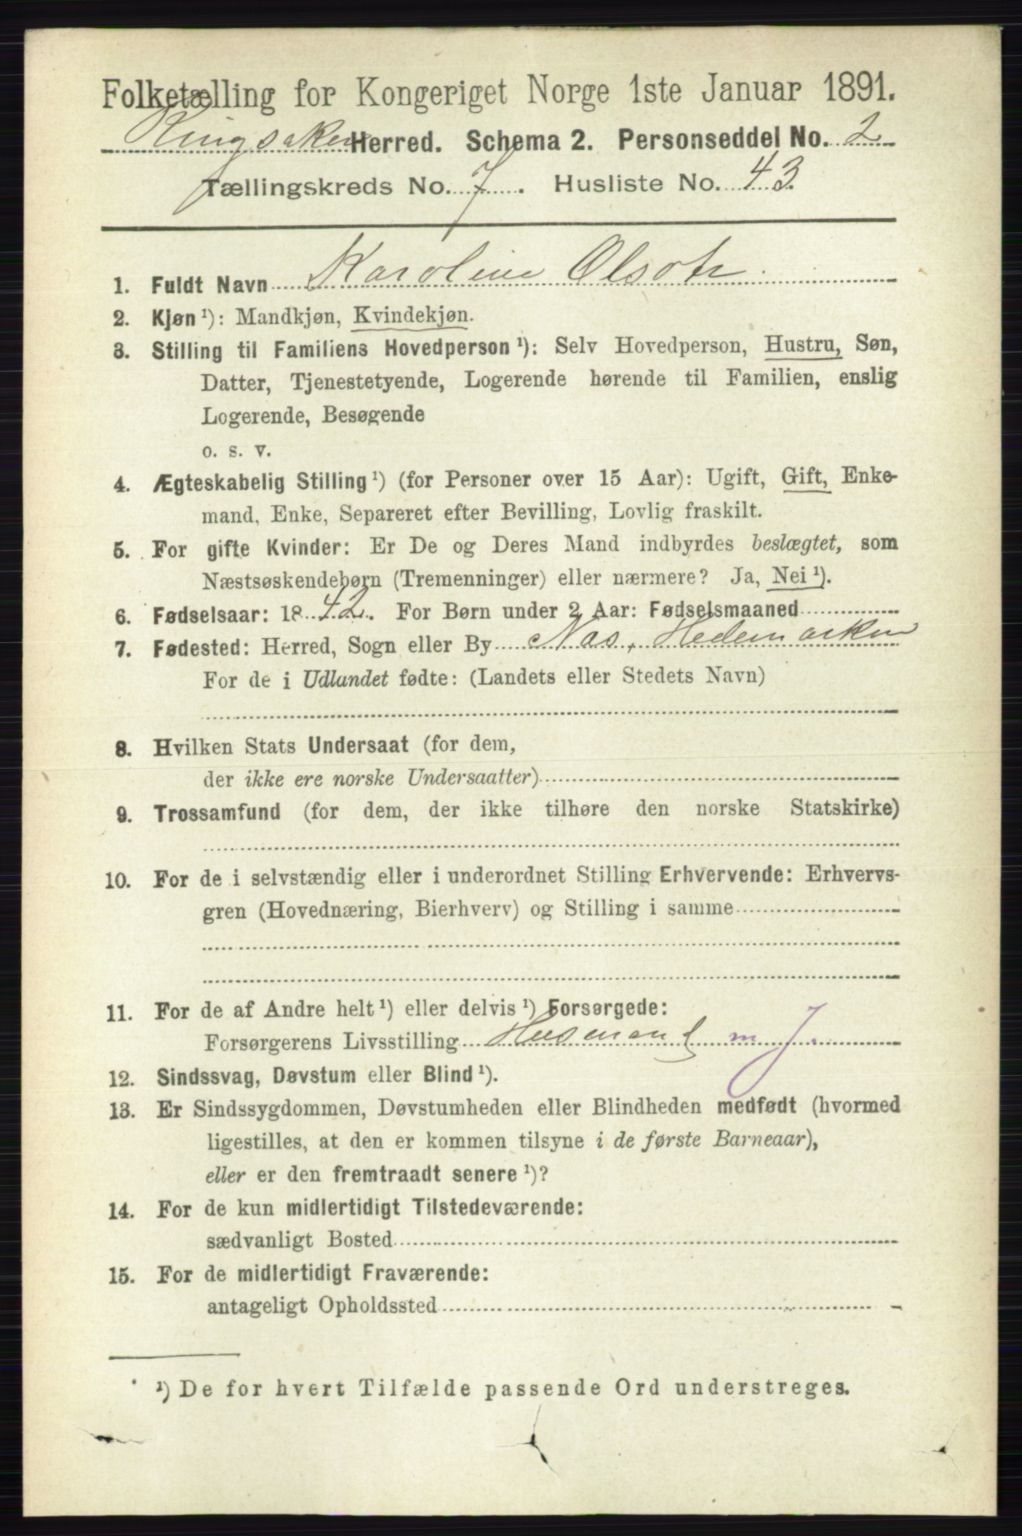 Folketælling for Kongeriget Norge 1ste Januar 1891.
Ringsaker Herred. Schema 2. Personseddel No. 2
Tællingskreds No. 7. Husliste No. 43.
1. Fuldt Navn Karoline Olsdtr.
2. Kjøn ¹): Mandkjøn, Kvindekjøn.
3. Stilling til Familiens Hovedperson ¹): Selv Hovedperson, Hustru, Søn,
Datter, Tjenestetyende, Logerende hørende til Familien, enslig
Logerende, Besøgende
o. s. v.
4. Ægteskabelig Stilling ¹) (for Personer over 15 Aar): Ugift, Gift, Enke-
mand, Enke, Separeret efter Bevilling, Lovlig fraskilt.
5. For gifte Kvinder: Er De og Deres Mand indbyrdes beslægtet, som
Næstsøskendebørn (Tremenninger) eller nærmere? Ja, Nei ¹).
6. Fødselsaar: 1842. For Børn under 2 Aar: Fødselsmaaned
7. Fødested: Herred, Sogn eller By Næs, Hedemarken
For de i Udlandet fødte: (Landets eller Stedets Navn)
8. Hvilken Stats Undersaat (for dem,
der ikke ere norske Undersaatter)
9. Trossamfund (for dem, der ikke tilhøre den norske Statskirke)
10. For de i selvstændig eller i underordnet Stilling Erhvervende: Erhvervs-
gren (Hovednæring, Bierhverv) og Stilling i samme
11. For de af Andre helt ¹) eller delvis ¹) Forsørgede:
Forsørgerens Livsstilling Husmand m J.
12. Sindssvag, Døvstum eller Blind ¹).
13. Er Sindssygdommen, Døvstumheden eller Blindheden medfødt (hvormed
ligestilles, at den er kommen tilsyne i de første Barneaar),
eller er den fremtraadt senere ¹)?
14. For de kun midlertidigt Tilstedeværende:
sædvanligt Bosted
15. For de midlertidigt Fraværende:
antageligt Opholdssted
¹) De for hvert Tilfælde passende Ord understreges.